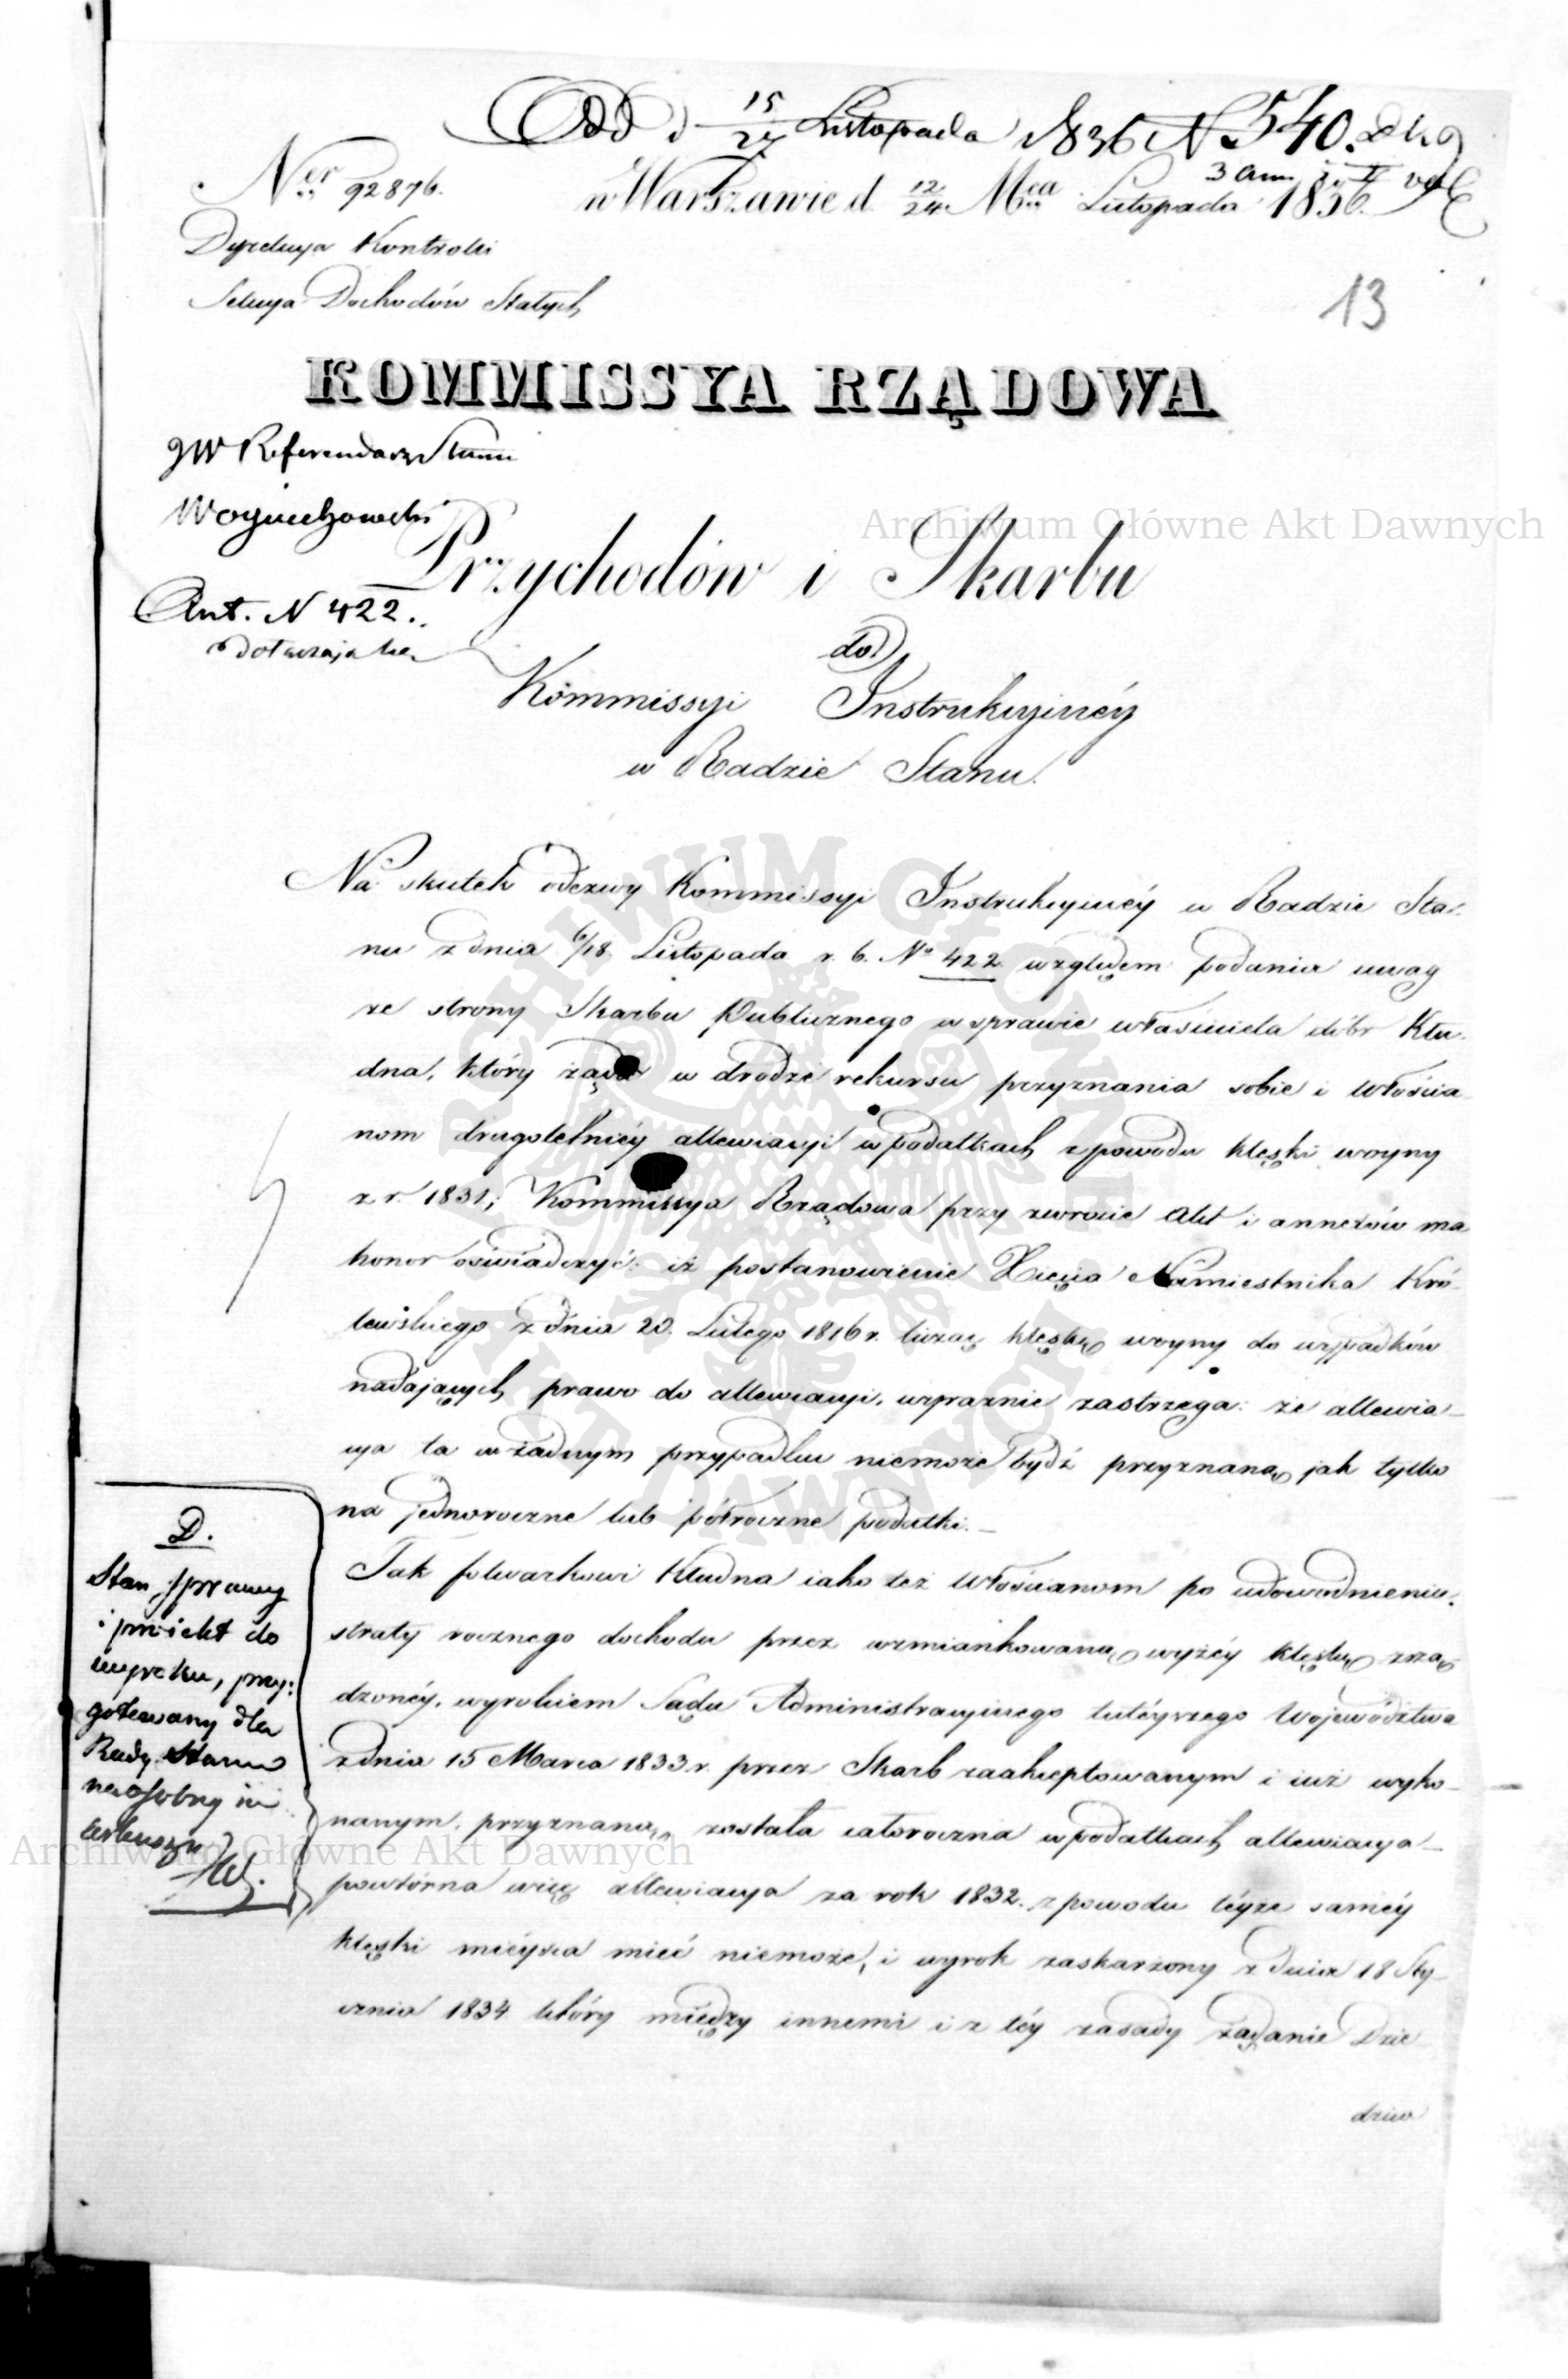 Odd d 15/27 Listopada 1836 N 540.
3 ann. i II vol
Ner 92876.
w Warszawie d. 12/24 Mca Listopada 1836.
Dyrekcya Kontrolli
Sekcya Dochodów Stałych
13
KOMMISSYA RZĄDOWA
JW Referendarz Stanu
Woyciechowski
Przychodów i Skarbu
Ant. N 422.
dołącza się
do
Kommissyi Instrukcyinéy
w Radzie Stanu.
Na skutek odezwy Kommissyi Instrukcyinéy w Radzie Sta-
nu z dnia 6/18 Listopada r. b. No 422 względem podania uwag
ze strony Skarbu Publicznego w sprawie właściciela dóbr Kłu-
dna, który żąda w drodze rekursu przyznania sobie i włościa-
nom drugoletniéy allewiacyi w podatkach z powodu klęski woyny
z r. 1831; Kommissya Rządowa przy zwrocie Akt i annexów ma
honor oświadczyć: iż postanowienie Xięcia Namiestnika Kró-
lewskiego z dnia 20. Lutego 1816 r. licząc klęskę woyny do wypadków
nadających prawo do allewiacyi, wyraznie zastrzega: że allewia-
cya ta w żadnym przypadku niemoże bydź przyznaną jak tylko
na jednoroczne lub półroczne podatki.
Tak folwarkowi Kłudna iako też Włościanom po udowodnieniu
straty rocznego dochodu przez wzmiankowaną wyżéy klęskę zrzą-
dzonéy, wyrokiem Sądu Administracyinego tutéyszego Województwa
z dnia 15 Marca 1833 r. przez Skarb zaakceptowanym i iuż wyko-
nanym, przyznaną została całoroczna w podatkach allewiacya
powtórna więc allewiacya za rok 1832. z powodu téyże saméy
klęski mieysca mieć niemoże, i wyrok zaskarżony z dnia 18 Sty-
cznia 1834 który między innemi i z téy zasady żądanie Dzie-
dzica
D.
Stan sprawy
i proiekt do
wyroku, przy-
gotowany dla
Rady Stanu
na osobny m
arkuszu
Archiwum Główne Akt Dawnych
Archiwum Główne Akt Dawnych
ARCHIWUM GŁÓWNE AKT DAWNYCH